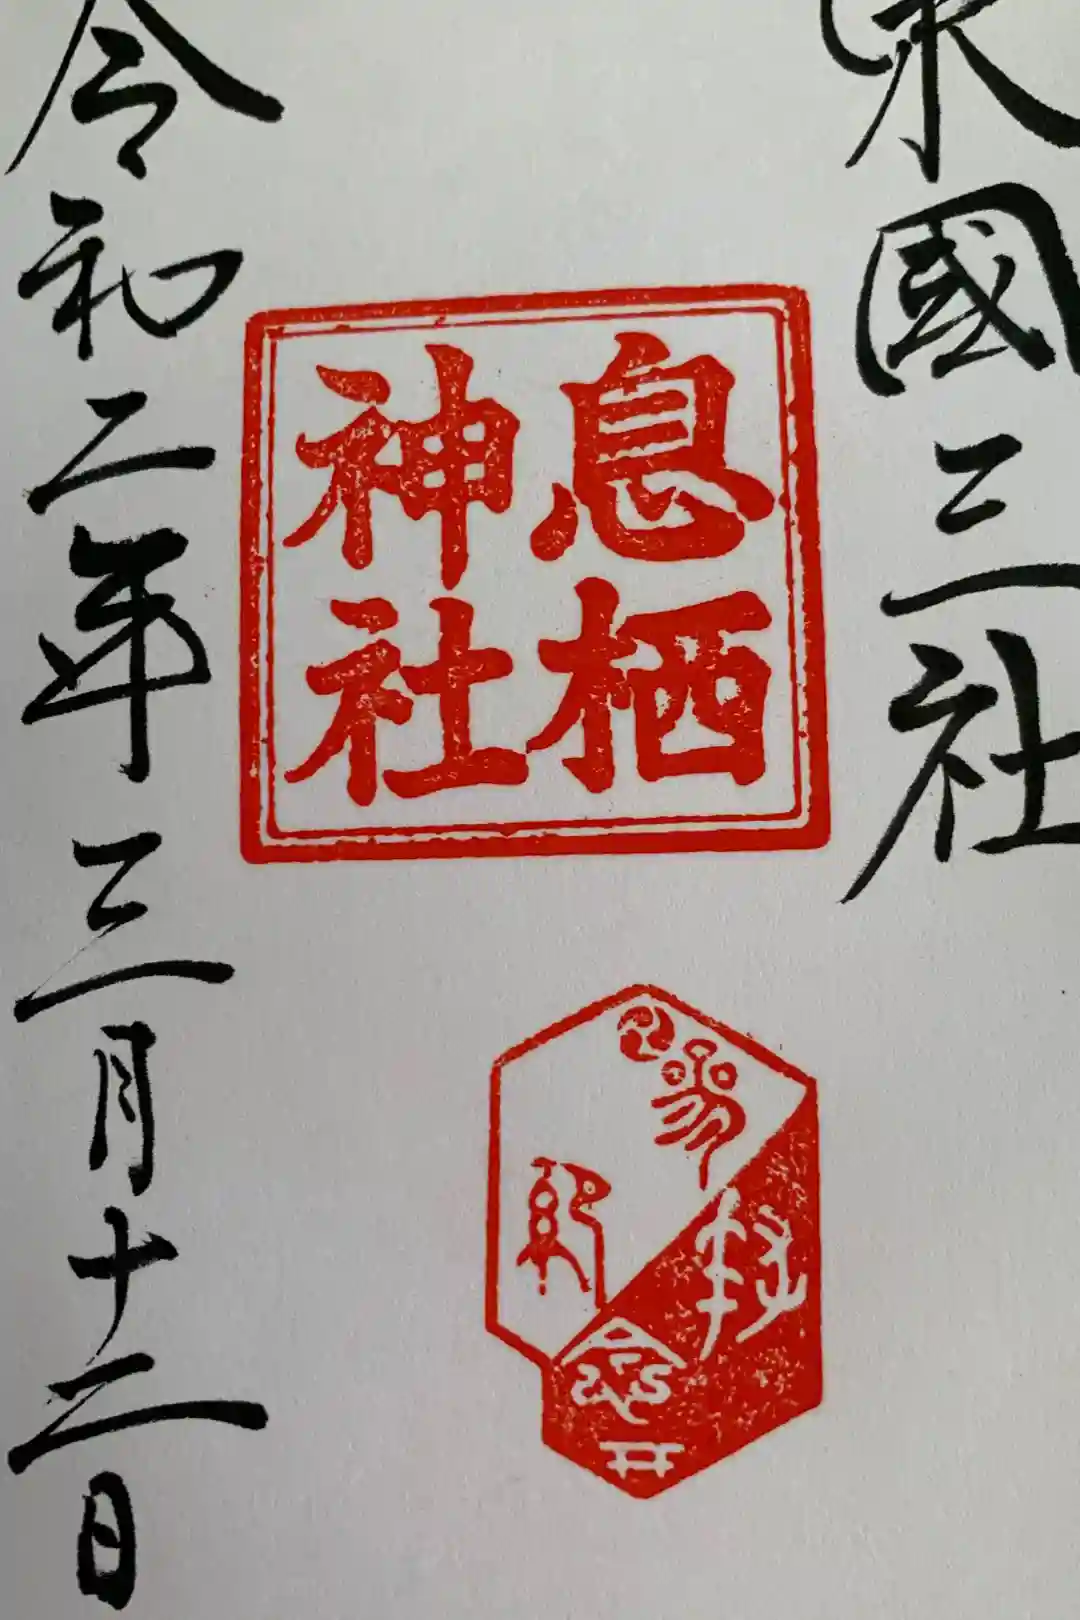 東國三社
息栖
神社
令和二年三月十二日